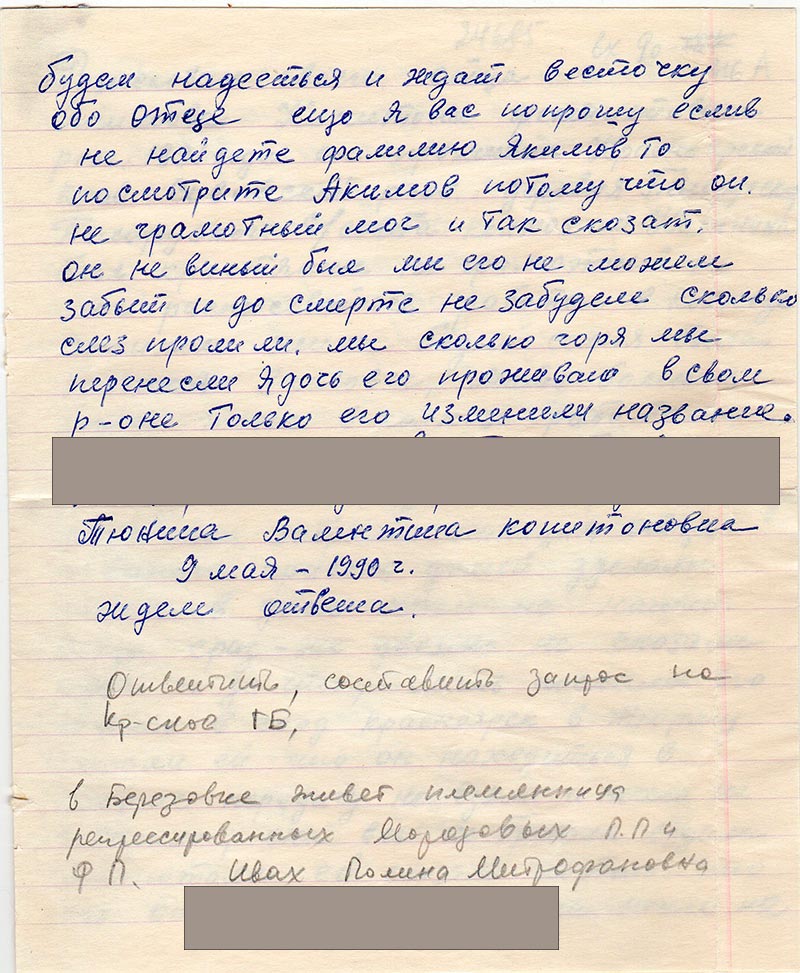 будем надеяться и ждат весточку
обо отеце ещо я вас попрошу еслив
не найдете фамилию Якимов то
посмотрите Акимов потому что он.
не грамотный мог и так скозат.
он не виный был мы его не можем
забыт и до смерте не забудем сколько
слез пролили. мы сколько горя мы
перенесли Я дочь его проживаю в свом
р-оне только его изминили название.
Тюнина Валинтина копитоновна
9 мая – 1990 г.
ждем ответа.
Ответить, составить запрос на
Кр-ское ГБ,
в Березовке живет племянница
репрессированных Морозовых П.П и
Ф П. Ивах Полина Митрофановна